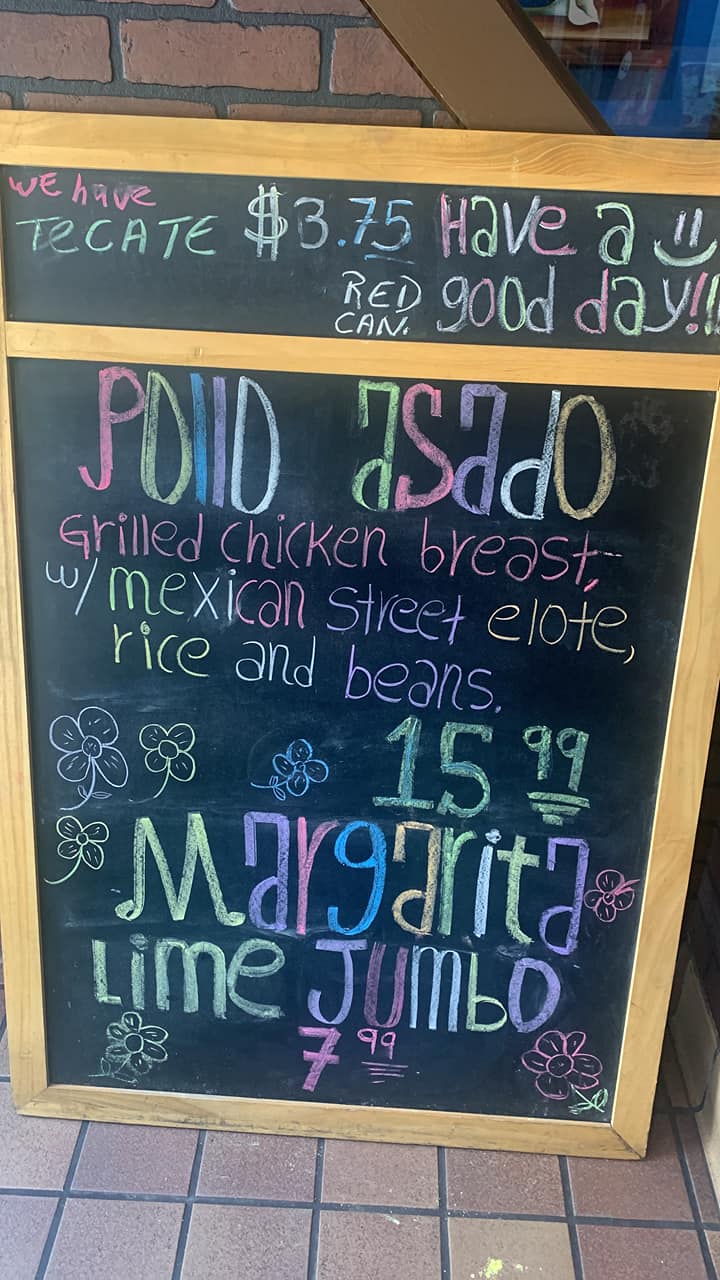 WE have
TECATE $3.75 Have a
RED good day!!!
CAN.
Pollo asado
Grilled chicken breast,
w/ mexican street elote,
rice and beans.
15 99
Margarita
Lime Jumbo
7 99